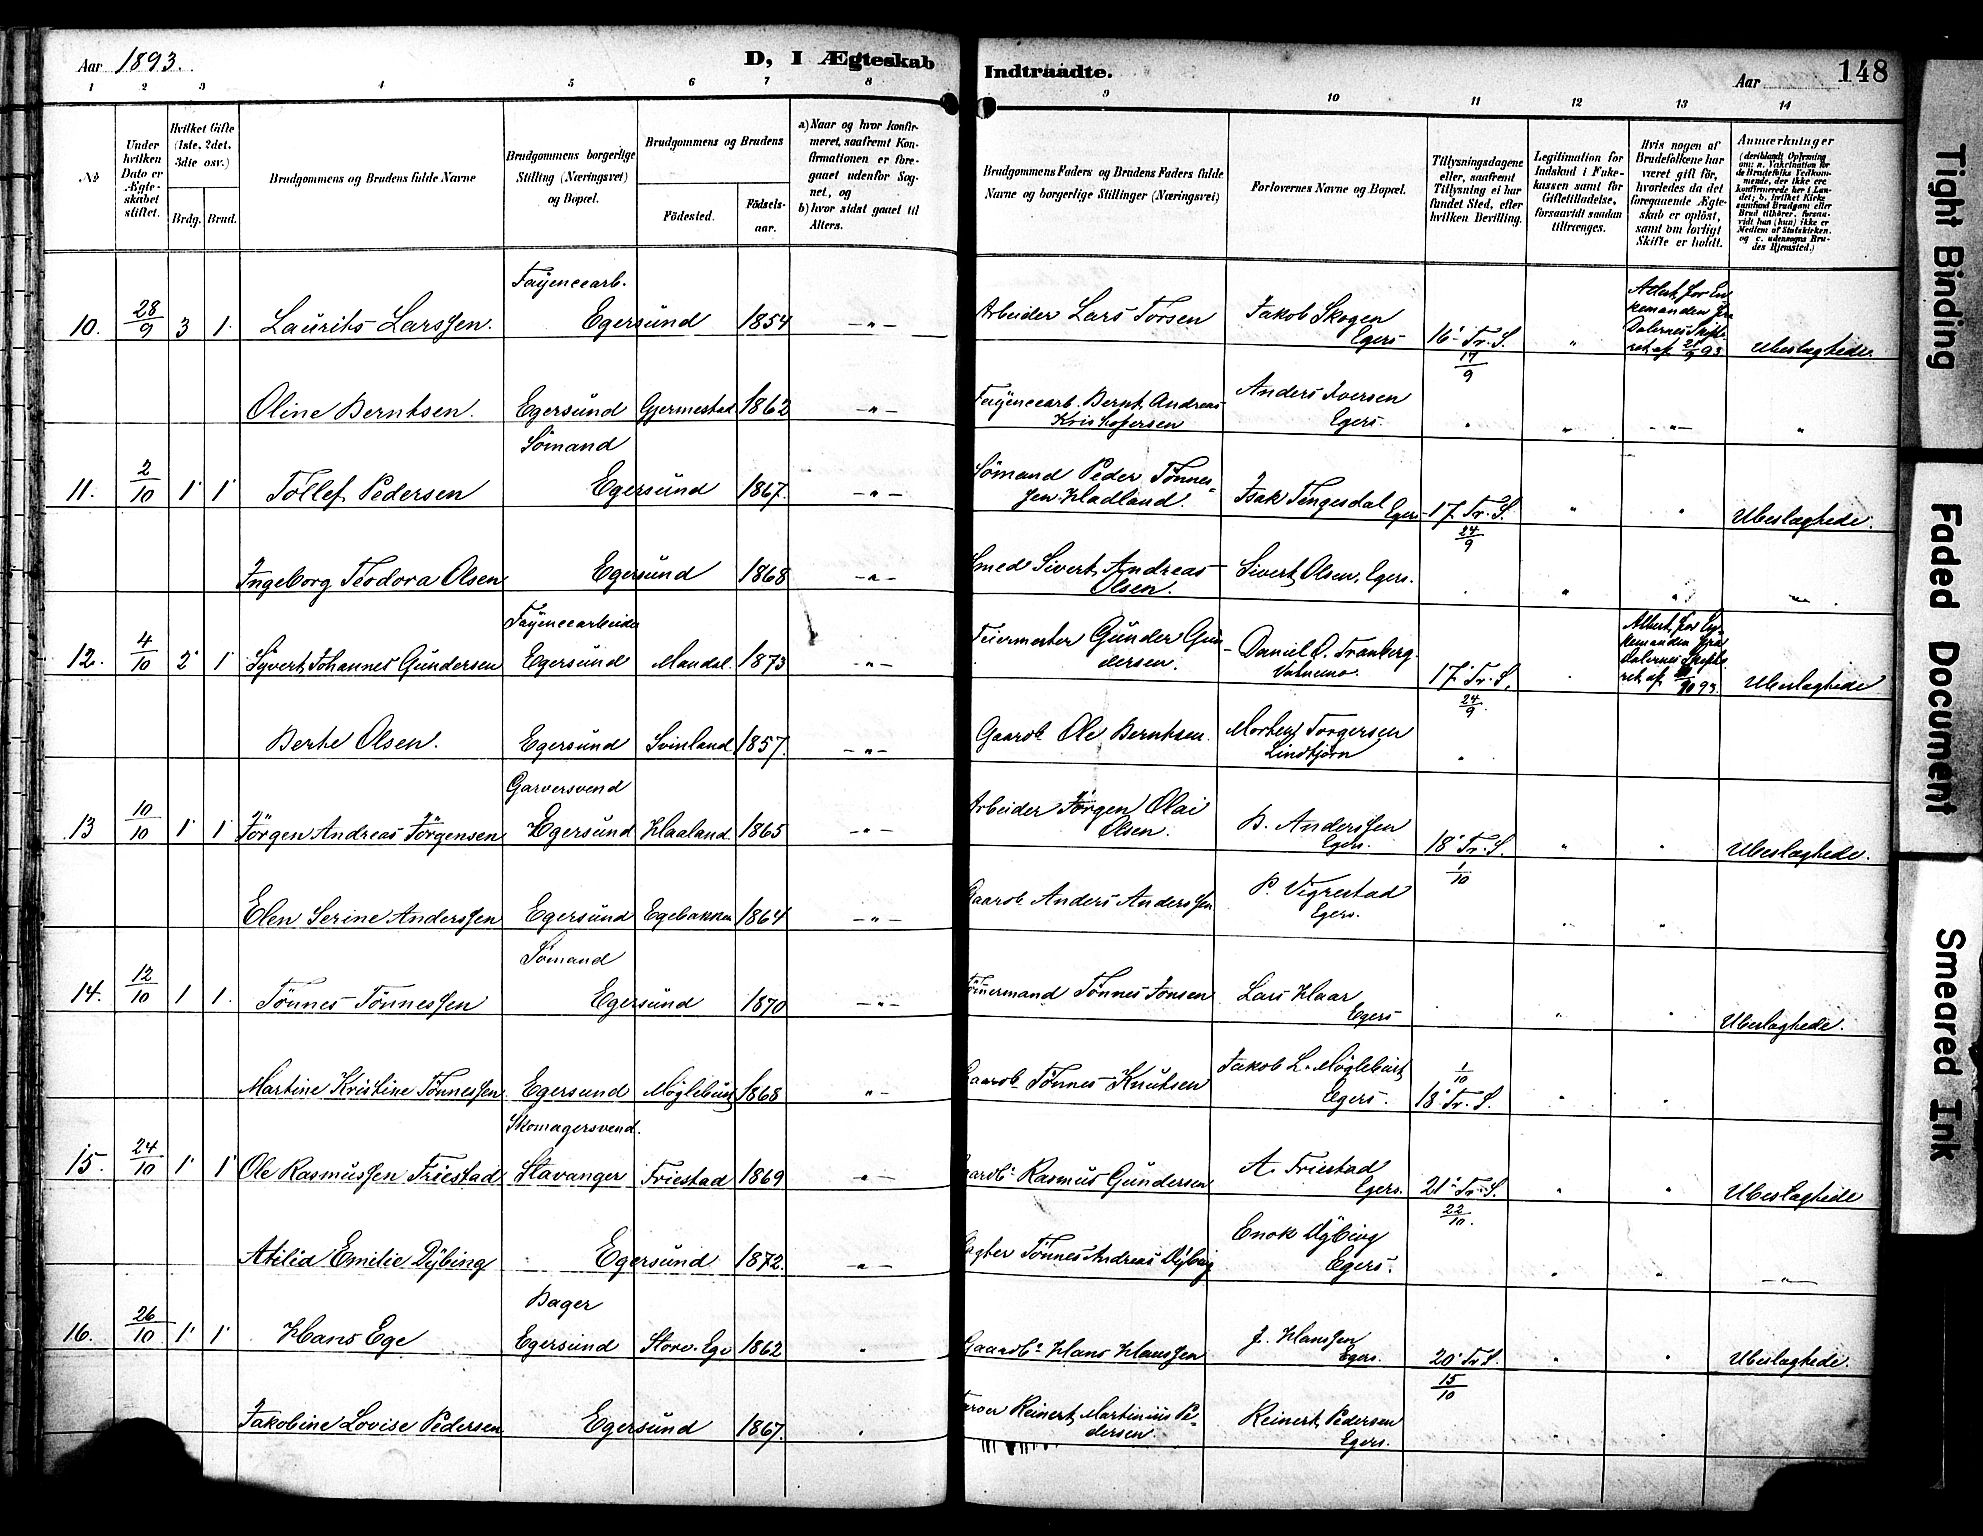 Aar 1893.
D, I Ægteskab Indtraadte.
Aar 148
1 2 3 4 5 6 7 8 9 10 11 12 13 14
No
Under hvilken Dato er Ægteskabet stiftet.
Hvilket Gifte (1ste, 2det, 3die osv.)
Brdg. Brud.
Brudgommens og Brudens fulde Navne
Brudgommens borgerlige Stilling (Næringsvei) og Bopæl.
Brudgommens og Brudens
Födested. Födselsaar.
a) Naar og hvor konfirmeret, saafremt Konfirmationen er foregaaet udenfor Sognet, og
b) hvor sidst gaaet til Alters.
Brudgommens Faders og Brudens Faders fulde Navne og borgerlige Stillinger (Næringsvei)
Forlovernes Navne og Bopæl.
Tillysningsdagene eller, saafremt Tillysning ei har fundet Sted, efter hvilken Bevilling.
Legitimation for Indskud i Enkekassen samt for Giftetilladelse, forsaavidt saadan tiltrænges.
Hvis nogen af Brudefolkene har været gift för, hvorledes da det foregaaende Ægteskab er oplöst, samt om lovligt Skifte er holdt.
Anmærkninger
Fayencearb.
10. 28/9 3 1. Laurits Larssen. Egersund 1854 —"— Arbeider Lars Torsen Jakob Skogen Egers 16' Tr. S. 17/9 " Attest for Enkemanden fra Dalernes Skifteret af 21/9 93 Ubeslægtede.
Oline Berntsen. Egersund Gjermestad 1862 —"— Fayencearb. Bernt Andreas Kristofersen Anders Iversen Egers. " " —"— "
Sömand
11. 2/10 1' 1' Tollef Pedersen Egersund 1867. —"— Sömand Peder Tönnessen Hadland. Isak Tengesdal Egers 17. Tr. S. 24/9 " " Ubeslægtede.
Ingeborg Teodora Olsen Egersund 1868 —"— Smed Sivert Andreas Olsen. Sivert Olsen, Egers. " " "
Fayencearbeider
12. 4/10 2' 1' Syvert Johannes Gundersen Egersund Mandal 1873 —"— Feiermester Gunder Gundersen. Daniel O. Tranberg. 17' Tr. S. 24/9 Attest for Enkemanden fra Dalernes Skifteret af 10 93 Ubeslægtede
Berte Olsen. Egersund Svinland 1857. —"— Gaardb Ole Berntsen. Morten Torgersen Lindbjörn "
Garversvend
13 10/10 1' 1' Jörgen Andreas Jörgensen Egersund Haaland 1865 —"— Arbeider Jörgen Olai Olsen. B. Anderssen Egers. 18' Tr. S. 1/10 " " Ubeslægtede.
Elen Serine Anderssen Egersund Egebakken 1864 —"— Gaardb Anders Anderssen P. Vigrestad Egers. " "
Sömand
14. 12/10 1 1. Tönnes Tönnessen Egersund 1870 —"— Tömmermand Tönnes Jonsen Lars Haar Egers " " Ubeslægtede.
Martine Kristine Tönnessen. Egersund Möglebust 1868 "— Gaardb Tönnes Knutsen Jakob L. Möglebust Egers. 1/10 18' Tr. S. " "
Skomagersvend.
15. 24/10 1' 1' Ole Rasmussen Friestad Stavanger Friestad 1869 "— Gaardb. Rasmus Gundersen A. Friestad Egers. 21' Tr. S. 22/10. " " Ubeslægtede
Atilia Emilie Dybing Egersund 1872. "— Slagter Tönnes Andreas Dybing Enok Dybing Egers. " " —"—
Bager
16. 26/10 1' 1' Hans Ege Egersund Store-Ege 1862 " Gaardb. Hans Hanssen J. Hanssen Egers. 20' Tr. S. 15/10 " " Ubeslægtede.
Jakobine Lovise Pedersen. Egersund 1867. " Reinert Martinius Pedersen. Reinert Pedersen Egers. " "
Tight Binding
Faded Document
Smeared Ink